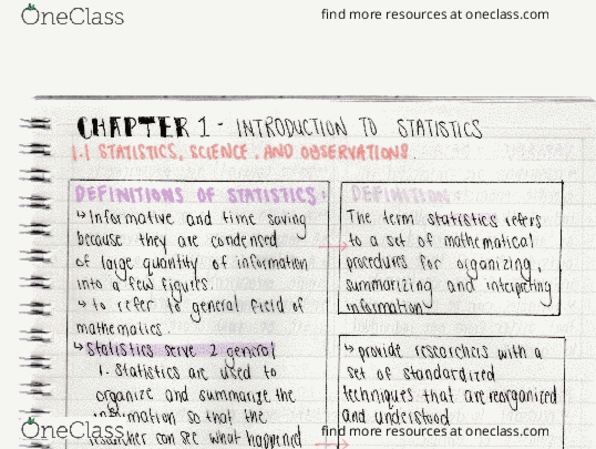 OneClass find more resources at oneclass.com
CHAPTER 1 - INTRODUCTION TO STATISTICS
1.1 STATISTICS, SCIENCE, AND OBSERVATIONS.
DEFINITIONS OF STATISTICS:
↳ Informative and time saving
because they are condensed
of large quantity of information
into a few figures.
↳ to refer to general field of
mathematics.
↳ Statistics serve 2 general
1. Statistics are used to
organize and summarize the
information so that the
researcher can see what happened
DEFINITION
The term statistics refers
to a set of mathematical
procedures for organizing,
summarizing and interpreting
information
↳ provide researchers with a
set of standardized
techniques that are reorganized
and understood
OneClass find more resources at oneclass.com